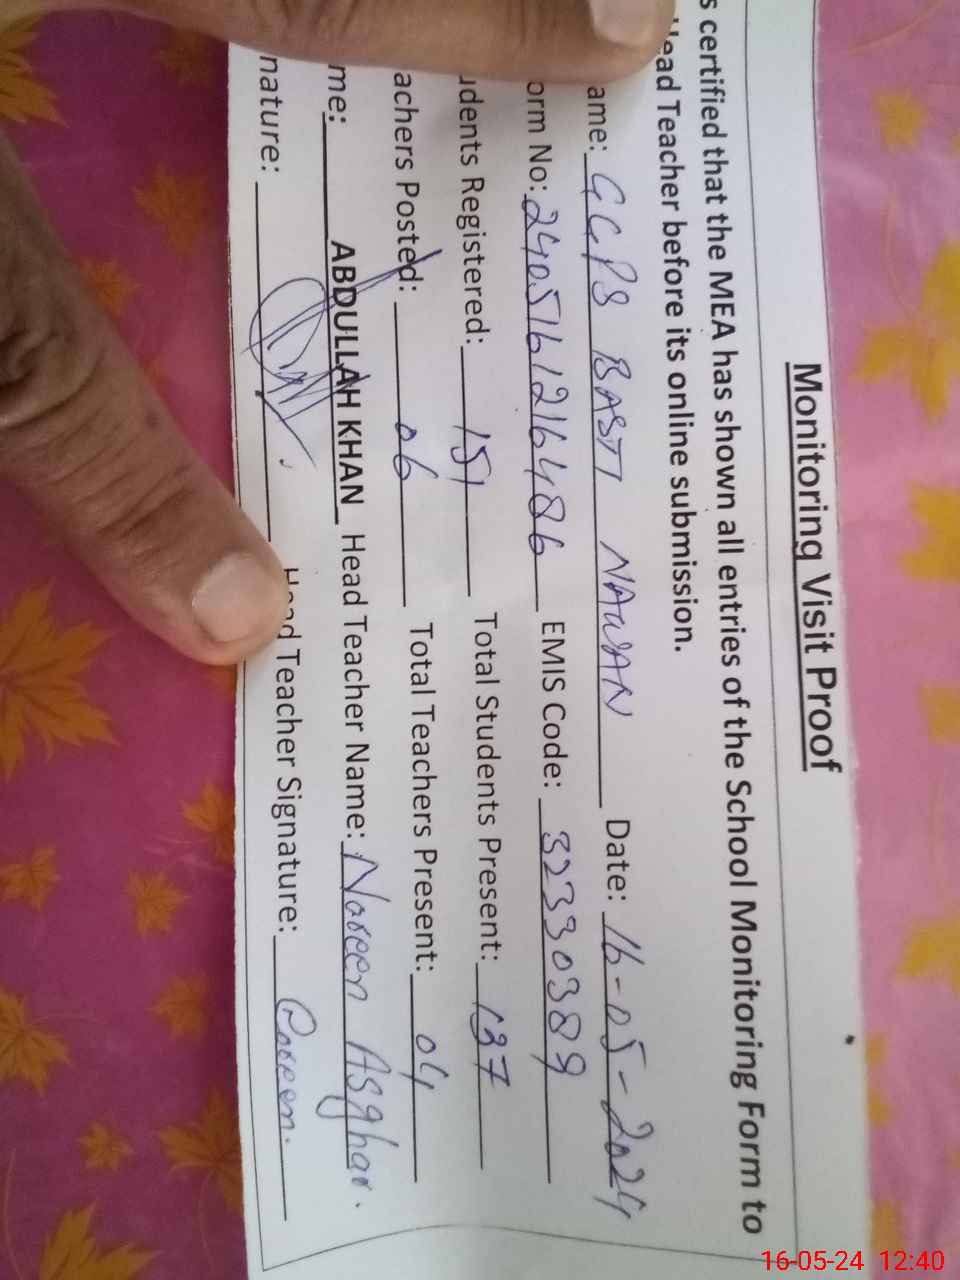 Monitoring Visit Proof
s certified that the MEA has shown all entries of the School Monitoring Form to
Head Teacher before its online submission.
ame: GGPS BASTI NAWAN Date: 16-05-2024
orm No: 2405161216486 EMIS Code: 32330389
udents Registered: 151 Total Students Present: 137
achers Posted: 06 Total Teachers Present: 04
me: ABDULLAH KHAN Head Teacher Name: Noreen Asghar.
nature: Head Teacher Signature: Noreen.
16-05-24 12:40